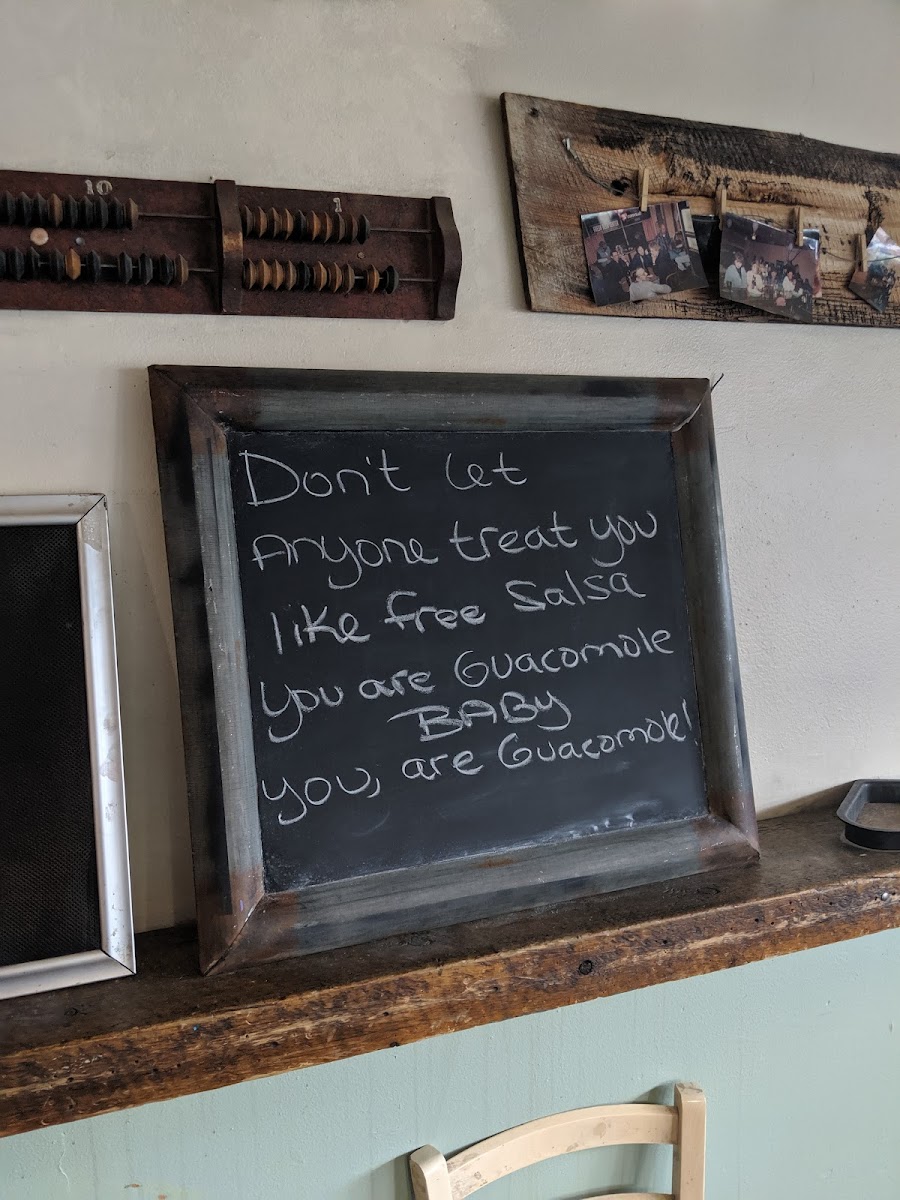 10
1
Don't let
Anyone treat you
like free Salsa
you are Guacomole
BABY
you, are Guacomole!